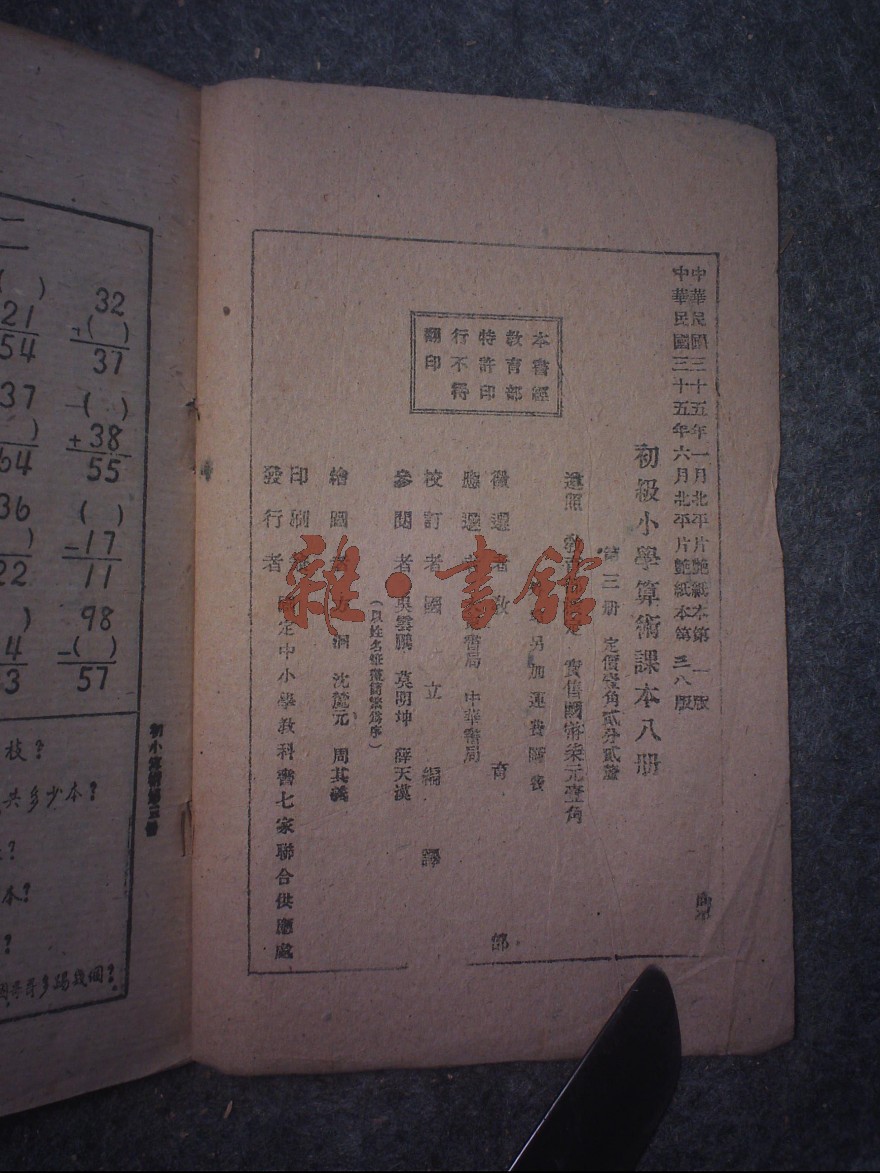 中華民國三十五年一月北平片艷紙本第一版
中華民國三十五年六月北平片艷紙本第三八版
初級小學算術課本八册
第三册 定價壹角貳分貳釐
遵照 教育部 定 實售國幣柒元壹角
另加運費匯費
徵選者教育部
應選者 書局 中華書局
校訂者國立編譯
參閱者吳雲鵬 莫明坤 薛天漢
(以姓名筆畫簡繁爲序)
繪圖者 沈麓元 周其義
印刷
發行者
國定中小學教科書七家聯合供應處
本書經
教育部
特許印
行不得
翻印
雜·書館
初小算術第三册
( )
21
54
32
+( )
37
37
)
64
-( )
+38
55
36
)
22
( )
-17
11
)
4
3
98
-( )
57
枝?
共多少本?
?
本?
?
多踢幾個?